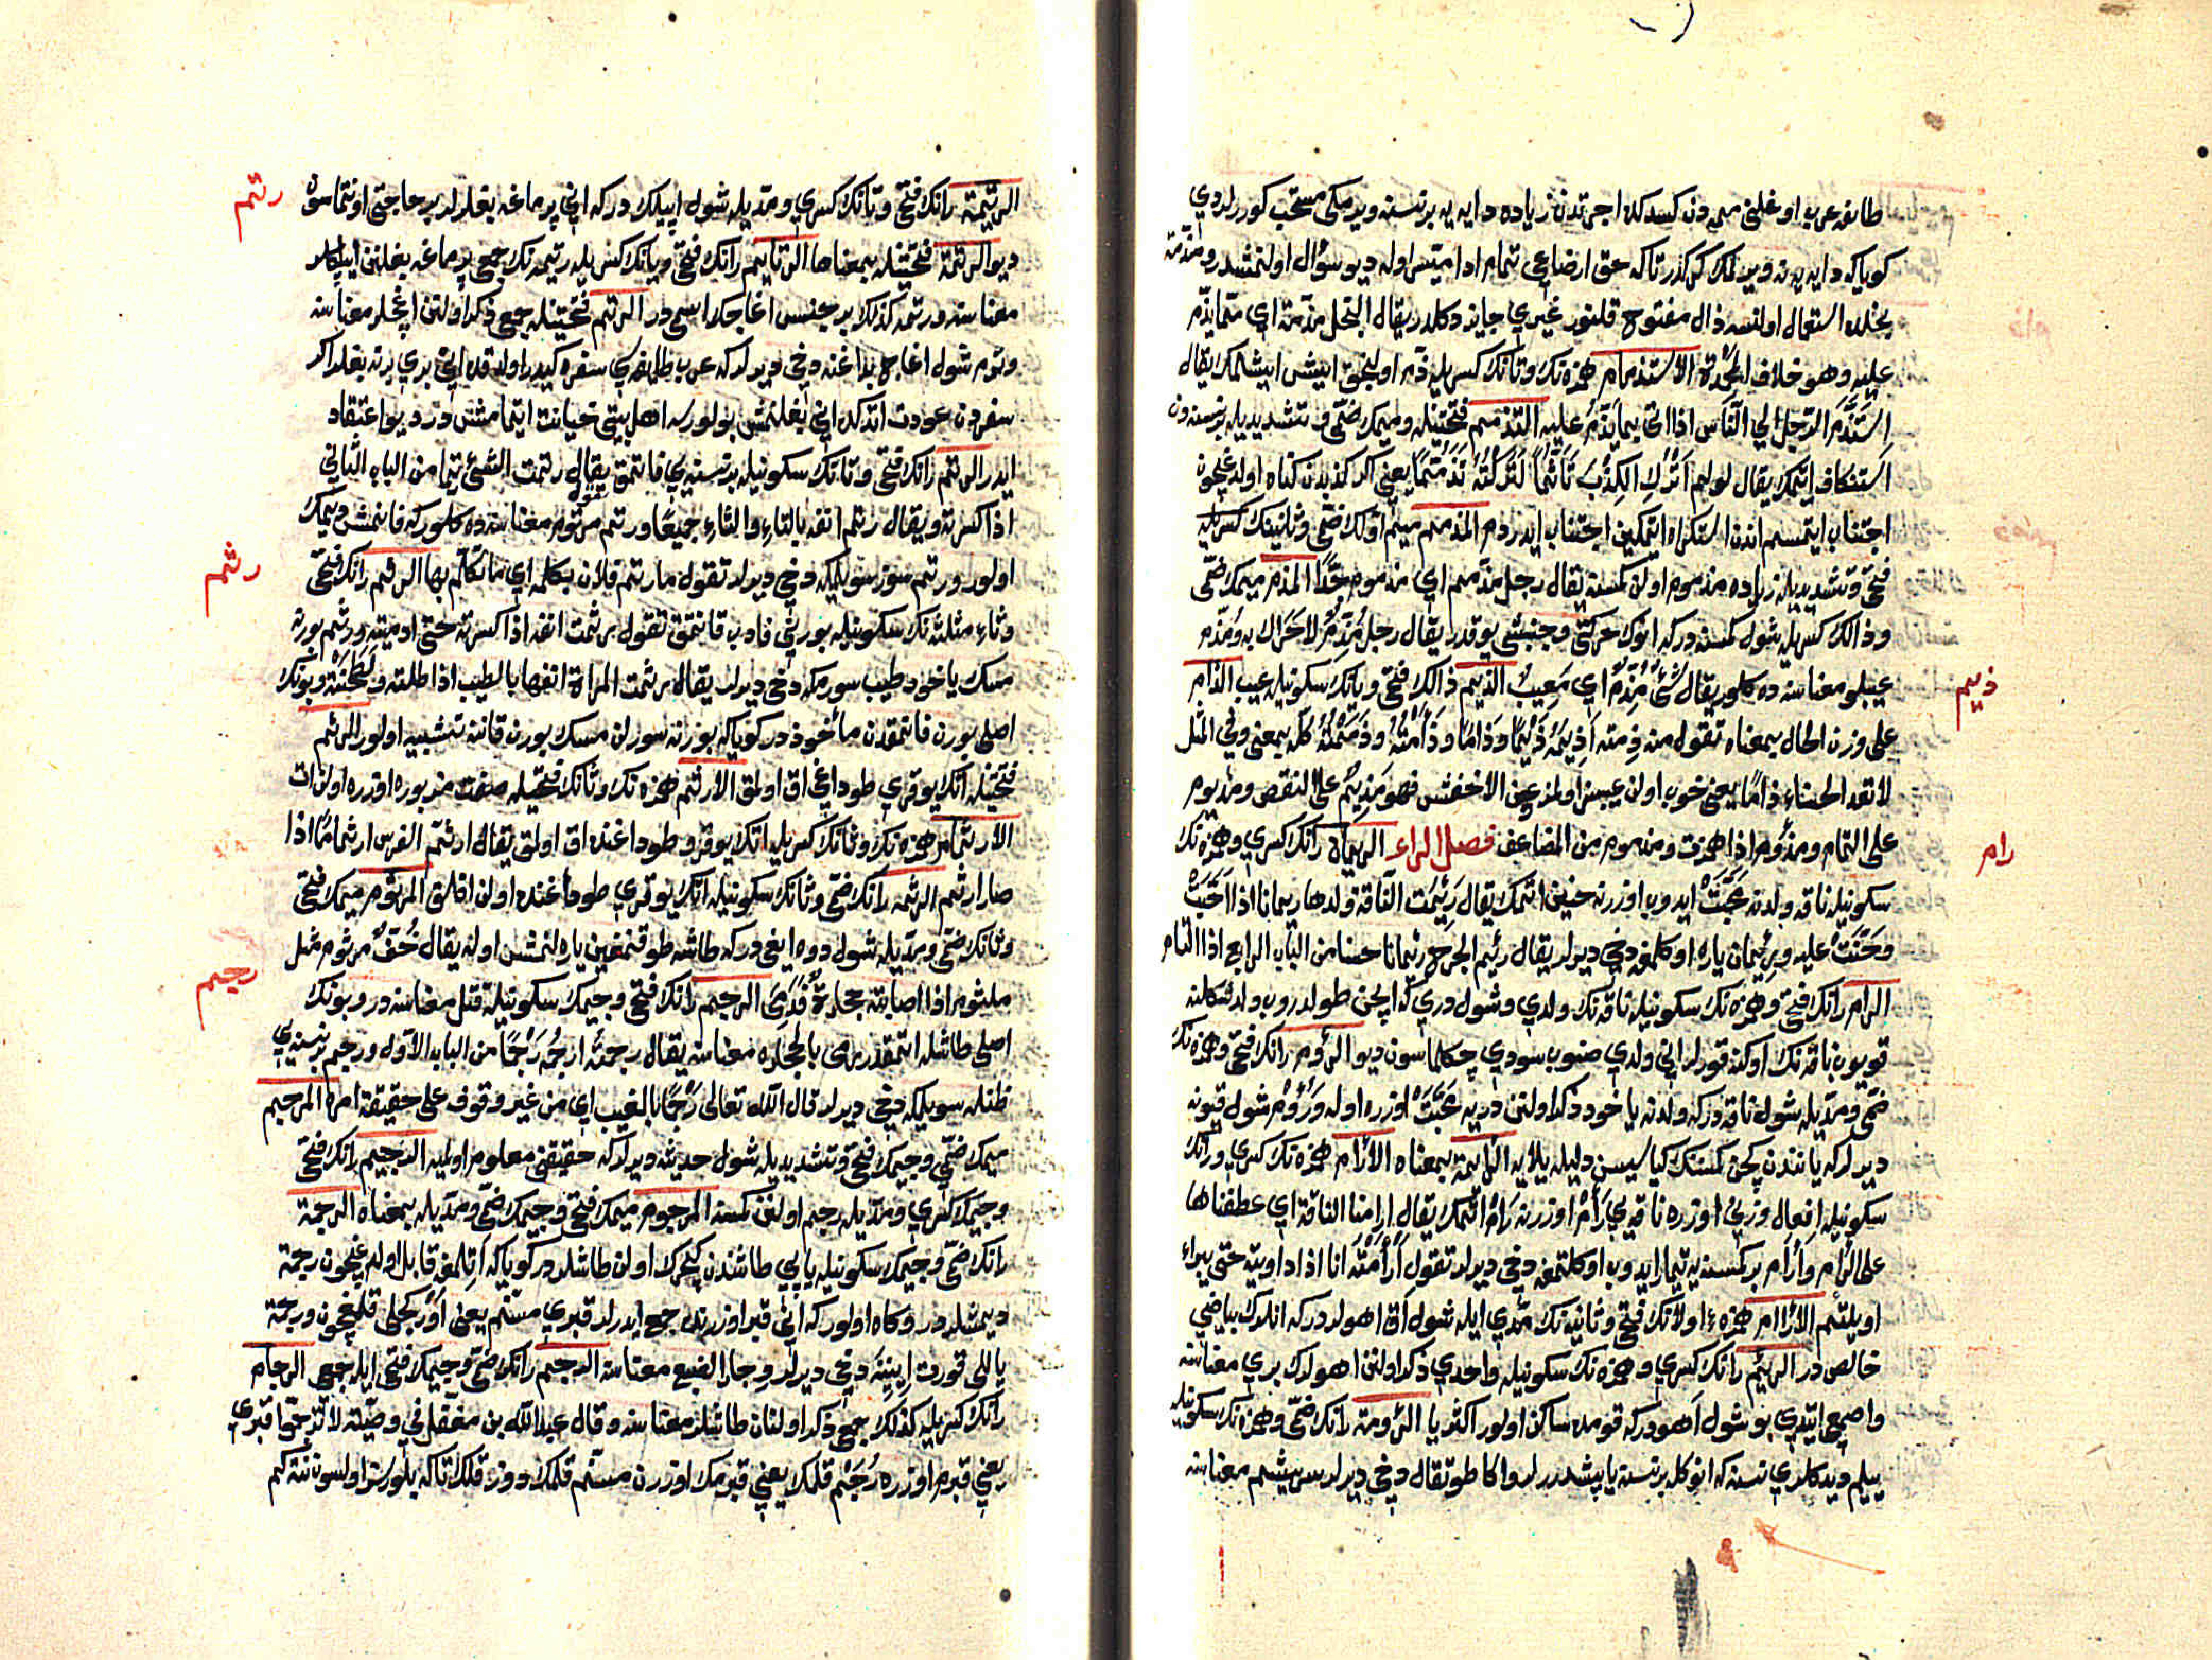 طائفه عرب اوغلنی ممه‌دن كسدكلرنده اجرتدن زیاده دایه یه بر نسنه ویرمكی مستحب كوررلردی
كویاكه دایه یه نه ویرلمك كركدر تاكه حق ارضاعی تمام ادا ایتمش اوله دیو سؤال اولنمشدر ومذمة
بخلده استعمال اولنسه ذال مفتوح قلنور غیری جایز دكلدر یقال البخل مذمة ای مما یذم
علیه وهو خلاف المحمدة الاستذمام همزه نك وتانك كسریله ذم اولنجق ایش ایشلمك یقال
استذم الرجل الی الناس اذا اتی بما یذم علیه التذمم فتحتینله ومیمك ضمی وتشدیدیله بر نسنه‌دن
استنكاف ایتمك یقال لو لم اترك الكذب تأثما لتركته تذمما یعنی اكر كذبدن كناه اولدیغیچون
اجتناب ایتمسم اندن استكراه ایتمكین اجتناب ایدردم المذمم میم اولك ضمی وثانینك كسریله
فتحی وتشدیدیله زیاده مذموم اولن كمسنه یقال رجل مذمم ای مذموم جدا المذم میمك ضمی
وذالك كسریله شول كمسنه دركه انوك حركتی وجنبشی یوقدر یقال رجل مذم لا حراك به ومذم
عیبلو معناسنه ده كلور یقال شیء مذم ای معیب الذیم ذالك فتحی ویانك سكونیله عیب الذام
علی وزن الحال بمعناه تقول منه ذمته اذیمه ذیما وذاما وذأمته وذممته كله بمعنی وفی المثل
لا تعدم الحسناء ذاما یعنی خوب اولن عیبسز اولمز عن الاخفش فهو مذیم علی النقص ومذیوم
علی التمام ومذؤم اذا همزت ومذموم من المضاعف فصل الراء الرئمان رانك كسری وهمزه نك
سكونیله ناقه ولدینه محبت ایدوب اوزرینه حنین اتمك یقال رئمت الناقة ولدها رئمانا اذا احبت
وحنت علیه ورئمان یاره اوكلمغه دخی دیرلر یقال رئم الجرح رئمانا حسنا من الباب الرابع اذا التام
الرأم رانك فتحی وهمزه نك سكونیله ناقه نك ولدی وشول دری كه ایچن طولدروب ولد شكلنه
قویوب ناقه نك اوكنه قورلر انی ولدی صنوب سودی چكلماسون دیو الرؤم رانك فتحی وهمزه نك
ضمی ومدیله شول ناقه دركه ولدینه یاخود ذكر اولنن دریه محبت اوزره اوله ورؤم شول قیونه
دیرلركه یانندن كچن كمسنك لباسین دلیله یلایه الرائمة بمعناه الارآم همزه نك كسری ورانك
سكونیله افعال وزنی اوزره ناقه یی رأم اوزرینه رام اتمك یقال ارأمنا الناقة ای عطفناها
علی الرأم وارآم بر كمسنه یه تیمار ایدوب اوكلتمغه دخی دیرلر تقول ارأمته انا اذا داویته حتی یبرا
او یلتئم الارآم همزه ء اولانك فتحی وثانیه نك مدی ایله شول اق اهولردركه انلرك بیاضی
خالص در الرئم رانك كسری وهمزه نك سكونیله واحدی ذكر اولنن اهولرك بری معناسنه
واصمعی ایتدی بو شول اهودركه قومده ساكن اولور اكثریا الرؤمة رانك ضمی وهمزه نك سكونیله
یلیم دیدكلری نسنه كه انوكله بر نسنه یاپشدررلر واكا طوتقال دخی دیرلر سریشم معناسنه
ذیم
رام
الرتیمة رانك فتحی وتانك كسری ومدیله شول ایپلك دركه انی پرماغه بغلرلر بر حاجتی اونتماسون
دیو الرتمة فتحتینله بمعناها الرتایم رانك فتحی ویانك كسریله رتیمه نك جمعی پرماغه بغلنن ایپلكلر
معناسنه ورتمه كذلك بر جنس اغاجك اسمی در الرتم فتحتینله جمع ذكر اولنن اغجلر معناسنه
ورتم شول اغاج بداغنه دخی دیرلركه عرب طائفه‌سی سفره كیدر اولدقده ایكی بری برینه بغلر اكر
سفردن عودت اتدكده انی بغلنمش بولورسه اهل بیتی خیانت ایتمامشدر دیو اعتقاد
ایدر الرتم رانك فتحی وتانك سكونیله بر نسنه یی قاتمق یقال رتمت الشیء رتما من الباب الثانی
اذا كسرته ویقال رتم انفه بالتاء والثاء جمیعا ورتم مرتوم معناسنه ده كلوركه قانمش دیمك
اولور ورتم سوز سویلمكه دخی دیرلر تقول ما رتم فلان بكلمة ای ما تكلم بها الرثم رانك فتحی
وثاء مثلثه نك سكونیله بورنی قادب قانتمق تقول رثمت انفه اذا كسرته حتی ادمیته ورثم بورنه
مسك یاخود طیب سورمكه دخی دیرلر یقال رثمت المراة انفها بالطیب اذا طلته ولطخته وبونك
اصلی بورن قانتمقدن مأخوذدر كویاكه بورنه سورلن مسك بورن قاننه تشبیه اولور الرثم
فتحتینله اتك یوقری طوداغی اق اولمق الارثم همزه نك وثانك فتحیله صفت مزبوره اوزره اولن ات
الارثمام همزه نك وثانك كسریله اتك یوقرو طوداغنده اق اولمق یقال ارثم الفرس ارثماما اذا
صار ارثم الرثمة رانك ضمی وثانك سكونیله اتك یوقری طوداغنده اولن اقلق المرثوم میمك فتحی
وثانك ضمی ومدیله شول دوه ایغی دركه طاشه طوقنمغین یارلنمش اوله یقال خف مرثوم مثل
ملثوم اذا اصابته حجارة فدمی الرجم رانك فتحی وجیمك سكونیله قتل معناسنه در وبونك
اصلی طاشله اتمقدر رمی بالحجاره معناسنه یقال رجمته ارجمه رجما من الباب الاول ورجم بر نسنه یی
ظنله سویلمكه دخی دیرلر قال الله تعالی رجما بالغیب ای من غیر وقوف علی حقیقة امره المرجم
میمك ضمی وجیمك فتحی وتشدیدیله شول حدیثه دیرلركه حقیقتی معلوم اولمیه الرجیم رانك فتحی
وجیمك كسری ومدیله رجم اولنن كمسنه المرجوم میمك فتحی وجیمك ضمی ومدیله بمعناه الرجمة
رانك ضمی وجیمك سكونیله یاپی طاشندن كچرك اولن طاشلردر كویاكه اتلمغه قابل اولدیغیچون رجمة
دیمشلردر وكاه اولوركه انی قبر اوزرینه جمع ایدرلر قبری مسنم یعنی اوركجلی قلمغچون ورجمة
یاللی قورت اینینه دخی دیرلر وجار الضبع معناسنه الرجم رانك ضمی وجیمك فتحی ایله جمعی الرجام
رانك كسریله كذلك جمع ذكر اولنان طاشلر معناسنه وقال عبدالله بن مغفل فی وصیته لا ترجموا قبری
یعنی قبرم اوزره رجم قلمك یعنی قبرمك اوزرن مسنم قلمك دوز قلك تاكه بللورسز اولسون نته كم
رتم
رثم
رجم